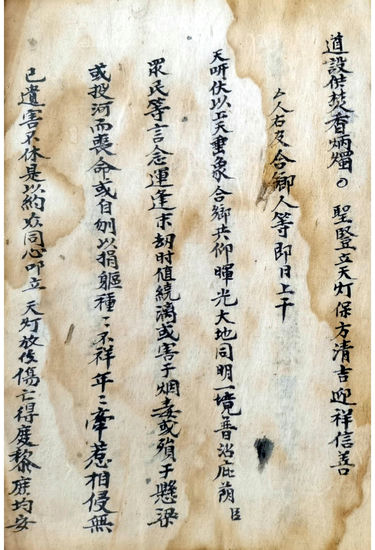 道設供焚香炳燭〇 聖豎立天灯保方清吉迎祥信善
厶人右及合鄉人等即日上干
天听伏以上天垂象合鄉共仰暉光大地同明一境普沾庇蔭臣
眾民等言念運逢末刼时值繞漓或害于烟毒或殞于懸梁
或投河而喪命或自刎以捐軀種〻不祥年〻牽惹相侵無
已遺害不休是以約众同心叩立 天灯放後傷亡得度黎庶均安